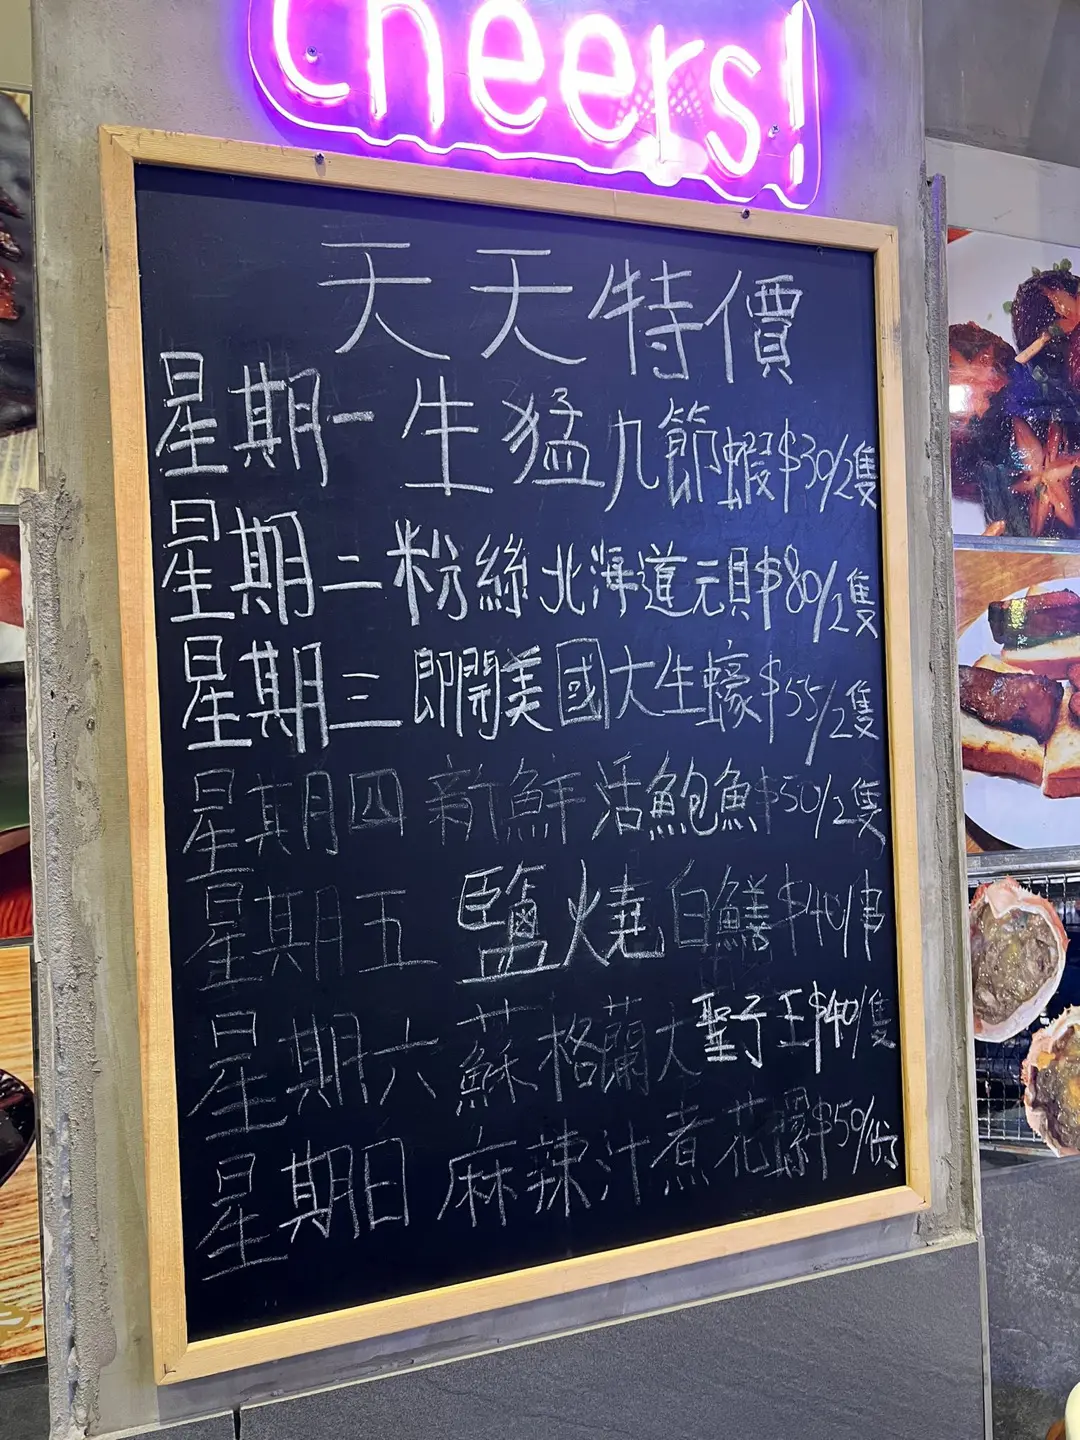 Cheers!
天天特價
星期一生猛九節蝦$39/2隻
星期二粉絲北海道元貝$80/2隻
星期三即開美國大生蠔$55/2隻
星期四新鮮活鮑魚$50/2隻
星期五 鹽燒白鱔$40/串
星期六蘇格蘭大聖子王$40/隻
星期日麻辣汁煮花螺$50/份